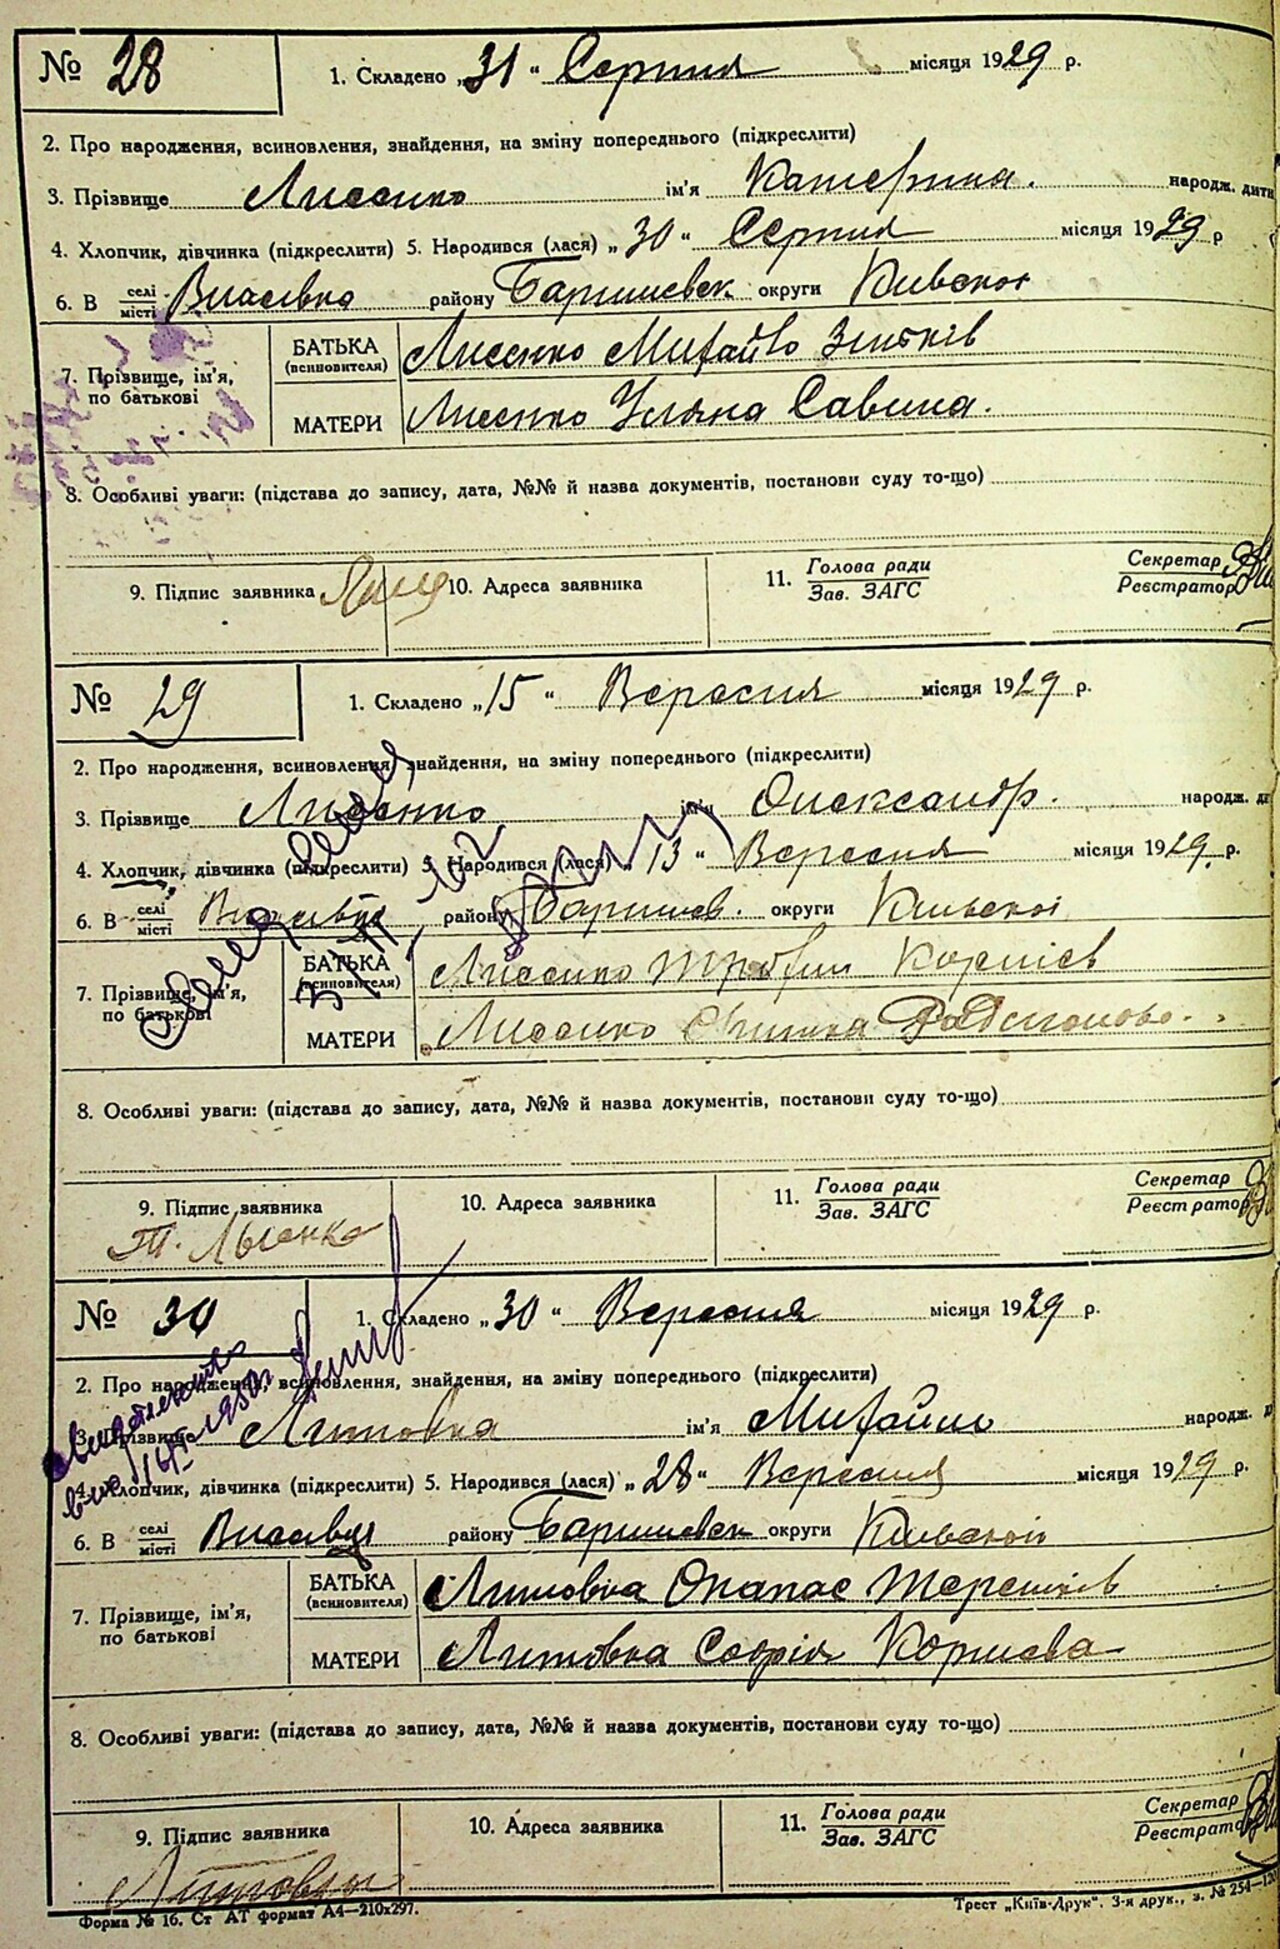 № 28 1. Складено „31“ Серпня місяця 1929 р.
2. Про народження, всиновлення, знайдення, на зміну попереднього (підкреслити)
3. Прізвище Лисенко ім'я Катерина. народж. дити
4. Хлопчик, дівчинка (підкреслити) 5. Народився (лася) „30“ Серпня місяця 1929 р
6. В селі місті Власівка району Баришевск округи Київскої
7. Прізвище, ім'я, по батькові
БАТЬКА (всиновителя) Лисенко Михайло
МАТЕРИ Лисенко Уляна Савина.
8. Особливі уваги: (підстава до запису, дата, №№ й назва документів, постанови суду то-що)
9. Підпис заявника 10. Адреса заявника 11. Голова ради Зав. ЗАГС Секретар Реєстратор
№ 29 1. Складено „15“ Вересня місяця 1929 р.
2. Про народження, всиновлення, знайдення, на зміну попереднього (підкреслити)
3. Прізвище Лисенко ім'я Олександр. народж. ди
4. Хлопчик, дівчинка (підкреслити) 5. Народився (лася) „13“ Вересня місяця 1929. р.
6. В селі місті Власівка району Баришев. округи Київскої
7. Прізвище, ім'я, по батькові
БАТЬКА (всиновителя) Лисенко Трофим Корніев
МАТЕРИ Лисенко Радионова.
8. Особливі уваги: (підстава до запису, дата, №№ й назва документів, постанови суду то-що)
9. Підпис заявника 10. Адреса заявника 11. Голова ради Зав. ЗАГС Секретар Реєстратор
Т. Лысенко
№ 30 1. Складено „30“ Вересня місяця 1929 р.
2. Про народження, всиновлення, знайдення, на зміну попереднього (підкреслити)
3. Прізвище Литовка ім'я Михайло народж. д
4. Хлопчик, дівчинка (підкреслити) 5. Народився (лася) „28“ Вересня місяця 1929 р.
6. В селі місті Власівці району Баришевск округи Київскої
7. Прізвище, ім'я, по батькові
БАТЬКА (всиновителя) Литовка Опанас Терешків
МАТЕРИ Литовка Софія Корнієва
8. Особливі уваги: (підстава до запису, дата, №№ й назва документів, постанови суду то-що)
9. Підпис заявника 10. Адреса заявника 11. Голова ради Зав. ЗАГС Секретар Реєстратор
Форма № 16. Ст АТ формат А4—210х297. Трест „Київ-Друк“. 3-я друк., з. № 254—120